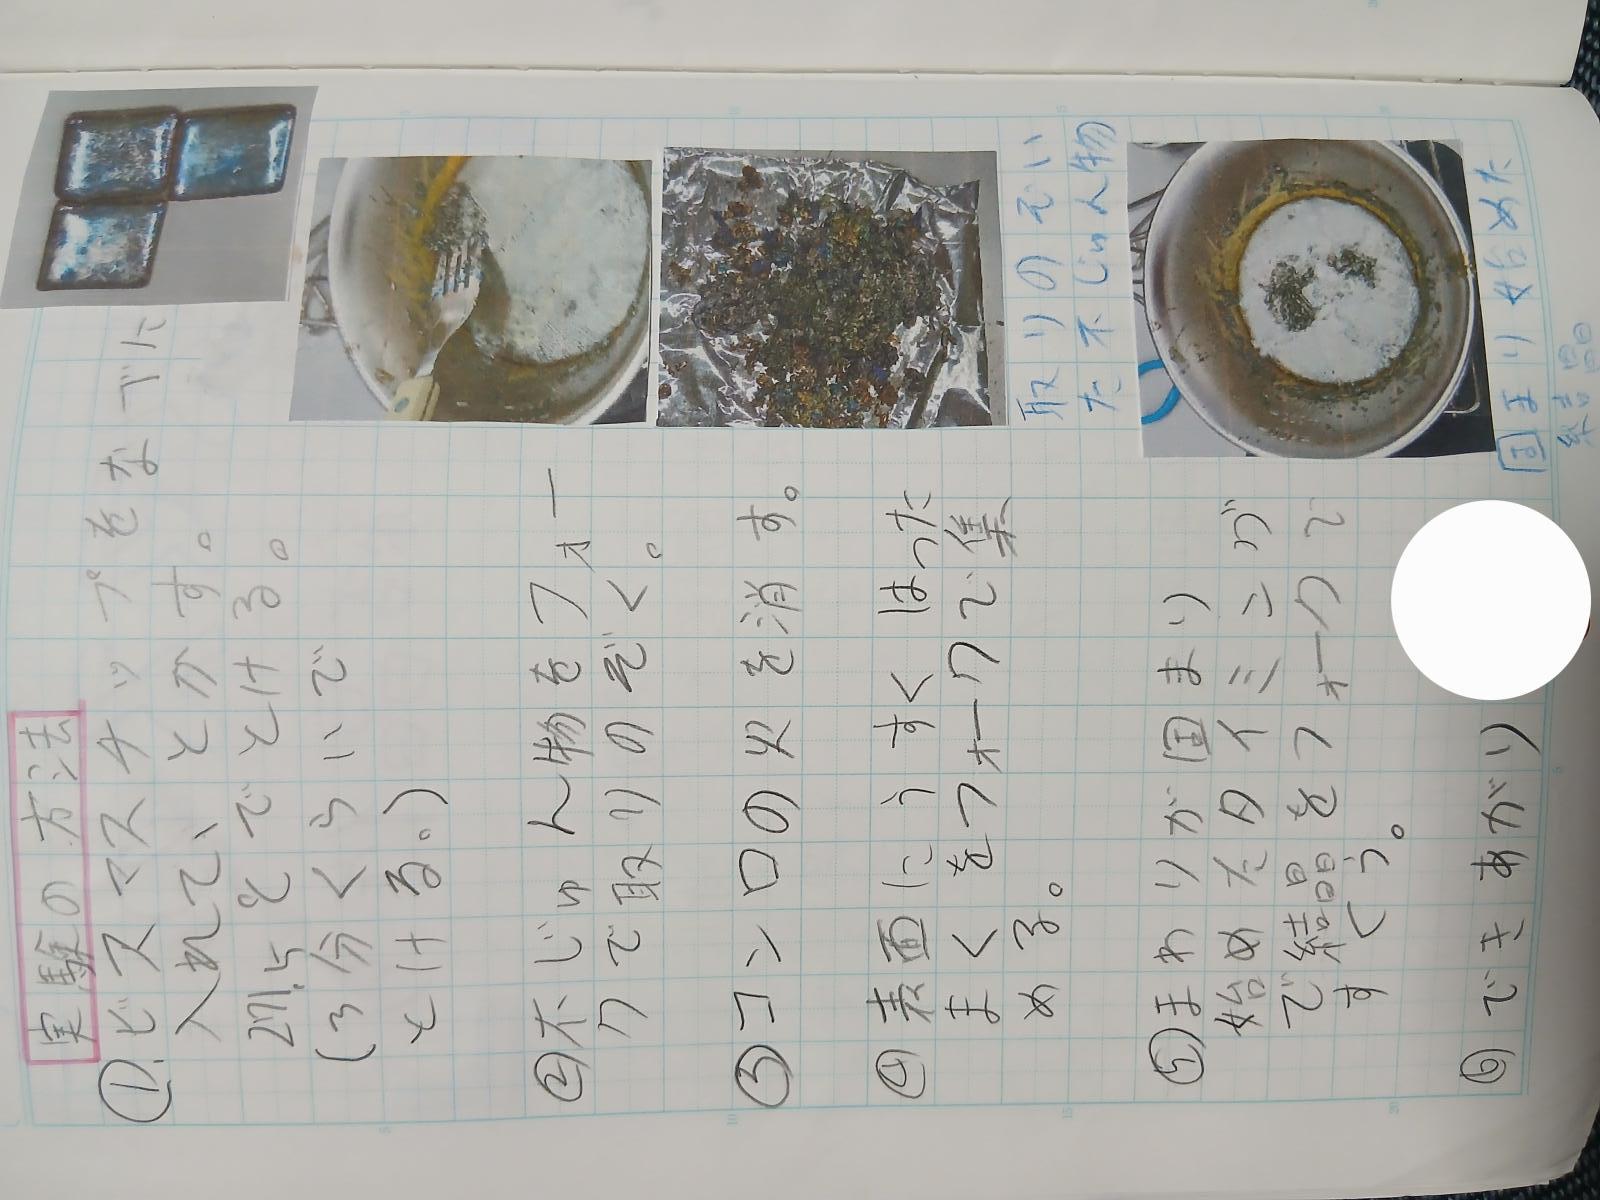 実験の方法
①.ビスマスチップをなべに
入れて、とかす。
271.5℃でとける。
(3分くらいで
とける。)
②不じゅん物をフォー
クで取りのぞく。
③コンロの火を消す。
④表面にうすくはった
まくをフォークで集
める。
⑤まわりが固まり
始めたタイミング
で結晶をフォークで
すくう。
⑥できあがり
取りのぞい
た不じゅん物
固まり始めた
結晶